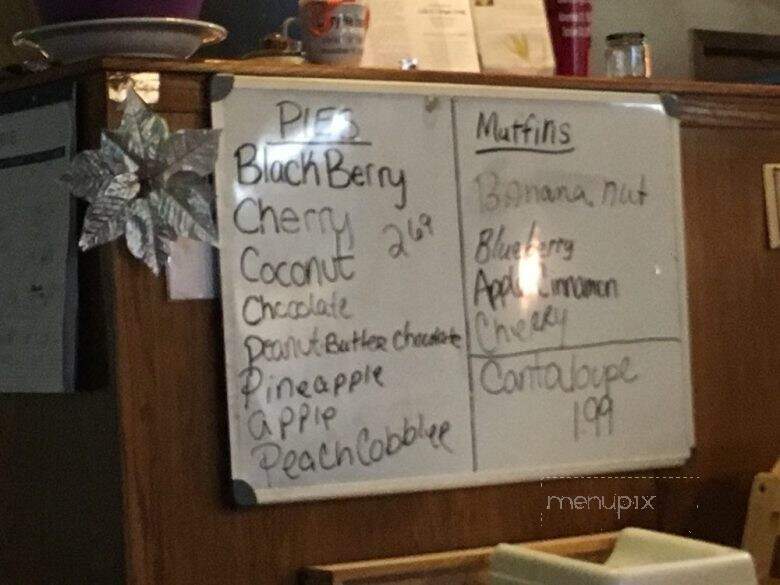 PIES
BlackBerry
Cherry
2 69
Coconut
Chocolate
Peanut Butter Chocolate
Pineapple
apple
Peach Cobbler
Muffins
Banana nut
Blueberry
Apple Cinnamon
Cherry
Cantaloupe
1.99
menupix